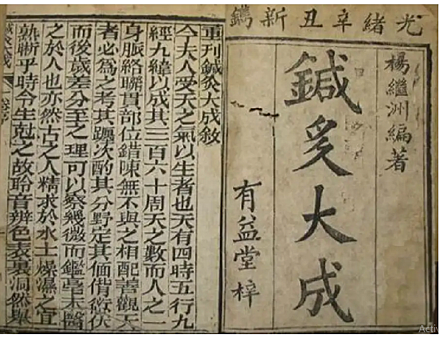 光緒辛丑新鐫
楊繼洲編著
鍼灸大成
有益堂梓
重刊鍼灸大成敘
今夫人受天之氣以生者也天有四時五行九
經九緯以成其三百六十周天之數而人之一
身脈絡聯貫部位錯陳無不與之相配善觀天
者必為之考其躔次酌其分野定其伏
而後歲差分至之理可以察幾微而鑑毫末醫
之於人也亦然古之人精求於水土燥濕之宜
熟乎時令生剋之故聆音辨色表裏洞然